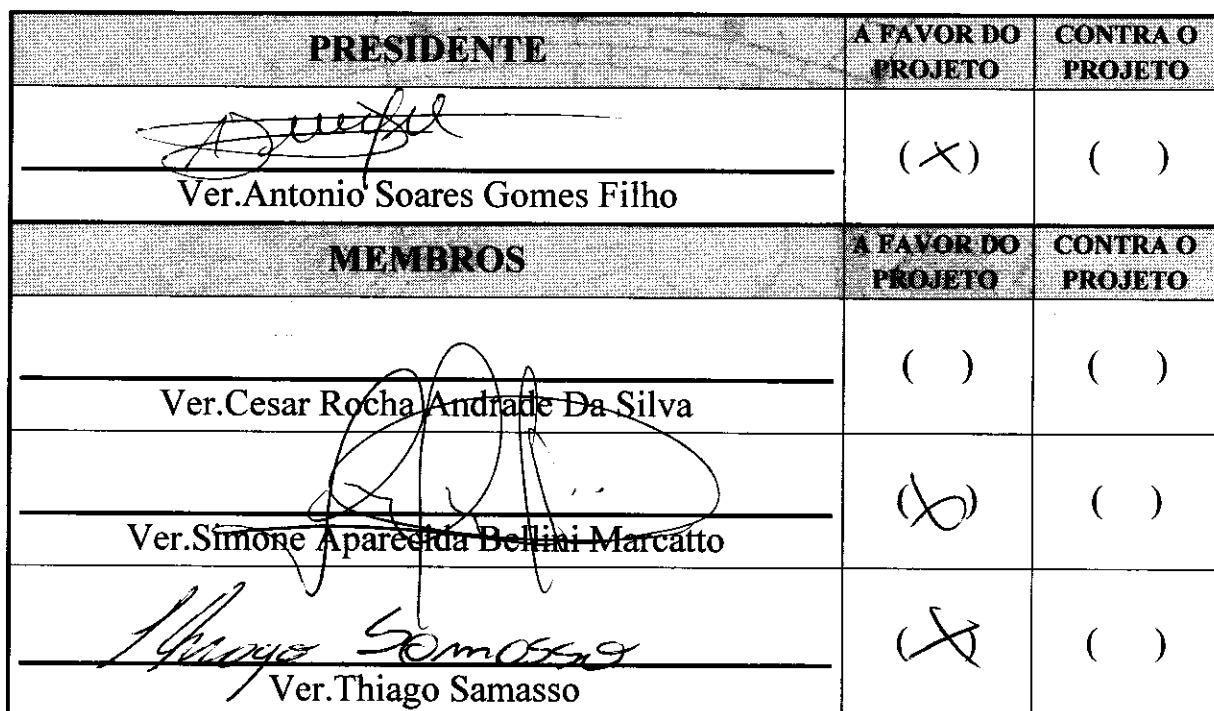 PRESIDENTE
A FAVOR DO PROJETO
CONTRA O PROJETO
(X)
( )
Ver.Antonio Soares Gomes Filho
MEMBROS
A FAVOR DO PROJETO
CONTRA O PROJETO
( )
( )
Ver.Cesar Rocha Andrade Da Silva
(X)
( )
Ver.Simone Aparecida Bellini Marcatto
Thiago Samasso
(X)
( )
Ver.Thiago Samasso